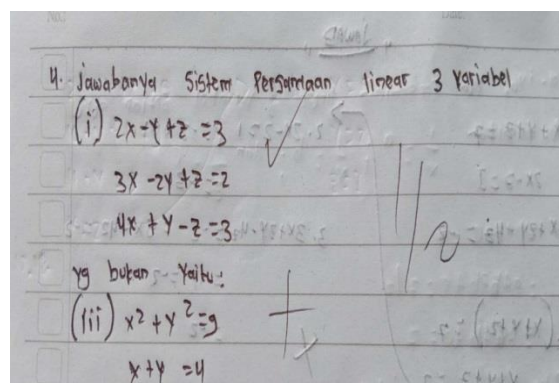 4. Jawabanya Sistem Persamaan linear 3 Variabel
(i) 2x-y+z=3
3x-2y+z=2
4x+y-z=3
yg bukan yaitu:
(iii) x²+y²=9
x+y=4